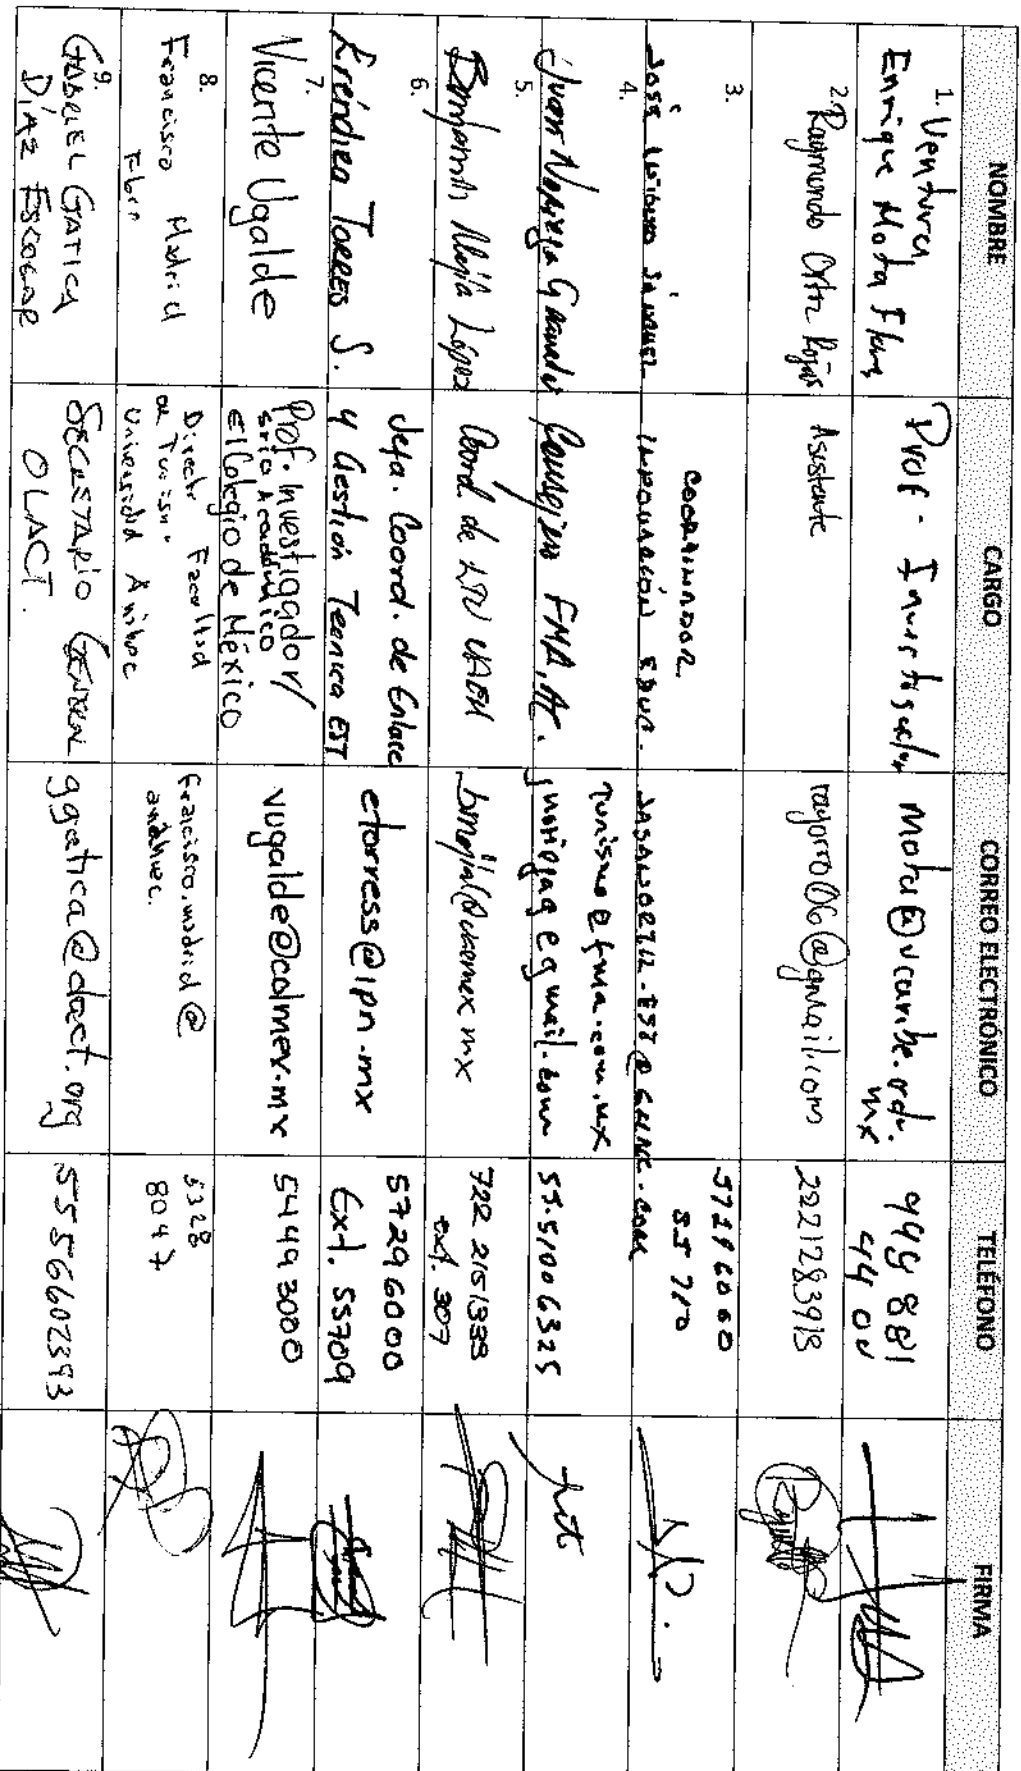 NOMBRE CARGO CORREO ELECTRÓNICO TELÉFONO FIRMA
1. Ventura
Enrique Mota Flores Prof - Investigador mota@ucaribe.edu.
mx 998 881
44 00
2. Raymundo Ortiz Rojas Asistente rayorro06@gmail.com 2221283918
3.
José Sánchez COORDINADOR
5729 6000
55710
4.
Juan Noriega Granados Consejero FMA, AC. turismo@fma.com.mx
jnoriegag@gmail.com 55.51006325
5.
Benjamín Mejía López Coord de LTU UAEM bmejial@uaemex.mx 722 2151333
ext. 307
6.
Eréndira TORRES S. Jefa. Coord. de Enlace
y Gestión Técnica EST etorress@ipn.mx 57296000
Ext. 55709
7.
Vicente Ugalde Prof. Investigador/
srio Académico
El Colegio de México vugalde@colmex.mx 5449 3000
8.
Francisco Madrid
Flores Director Facultad
de Turismo
Universidad Anáhuac francisco.madrid@
anahuac. 5328
8047
9.
GABRIEL GATICA
DÍAZ ESCOBAR SECRETARIO GENERAL
OLACT. ggatica@olact.org 5556602393